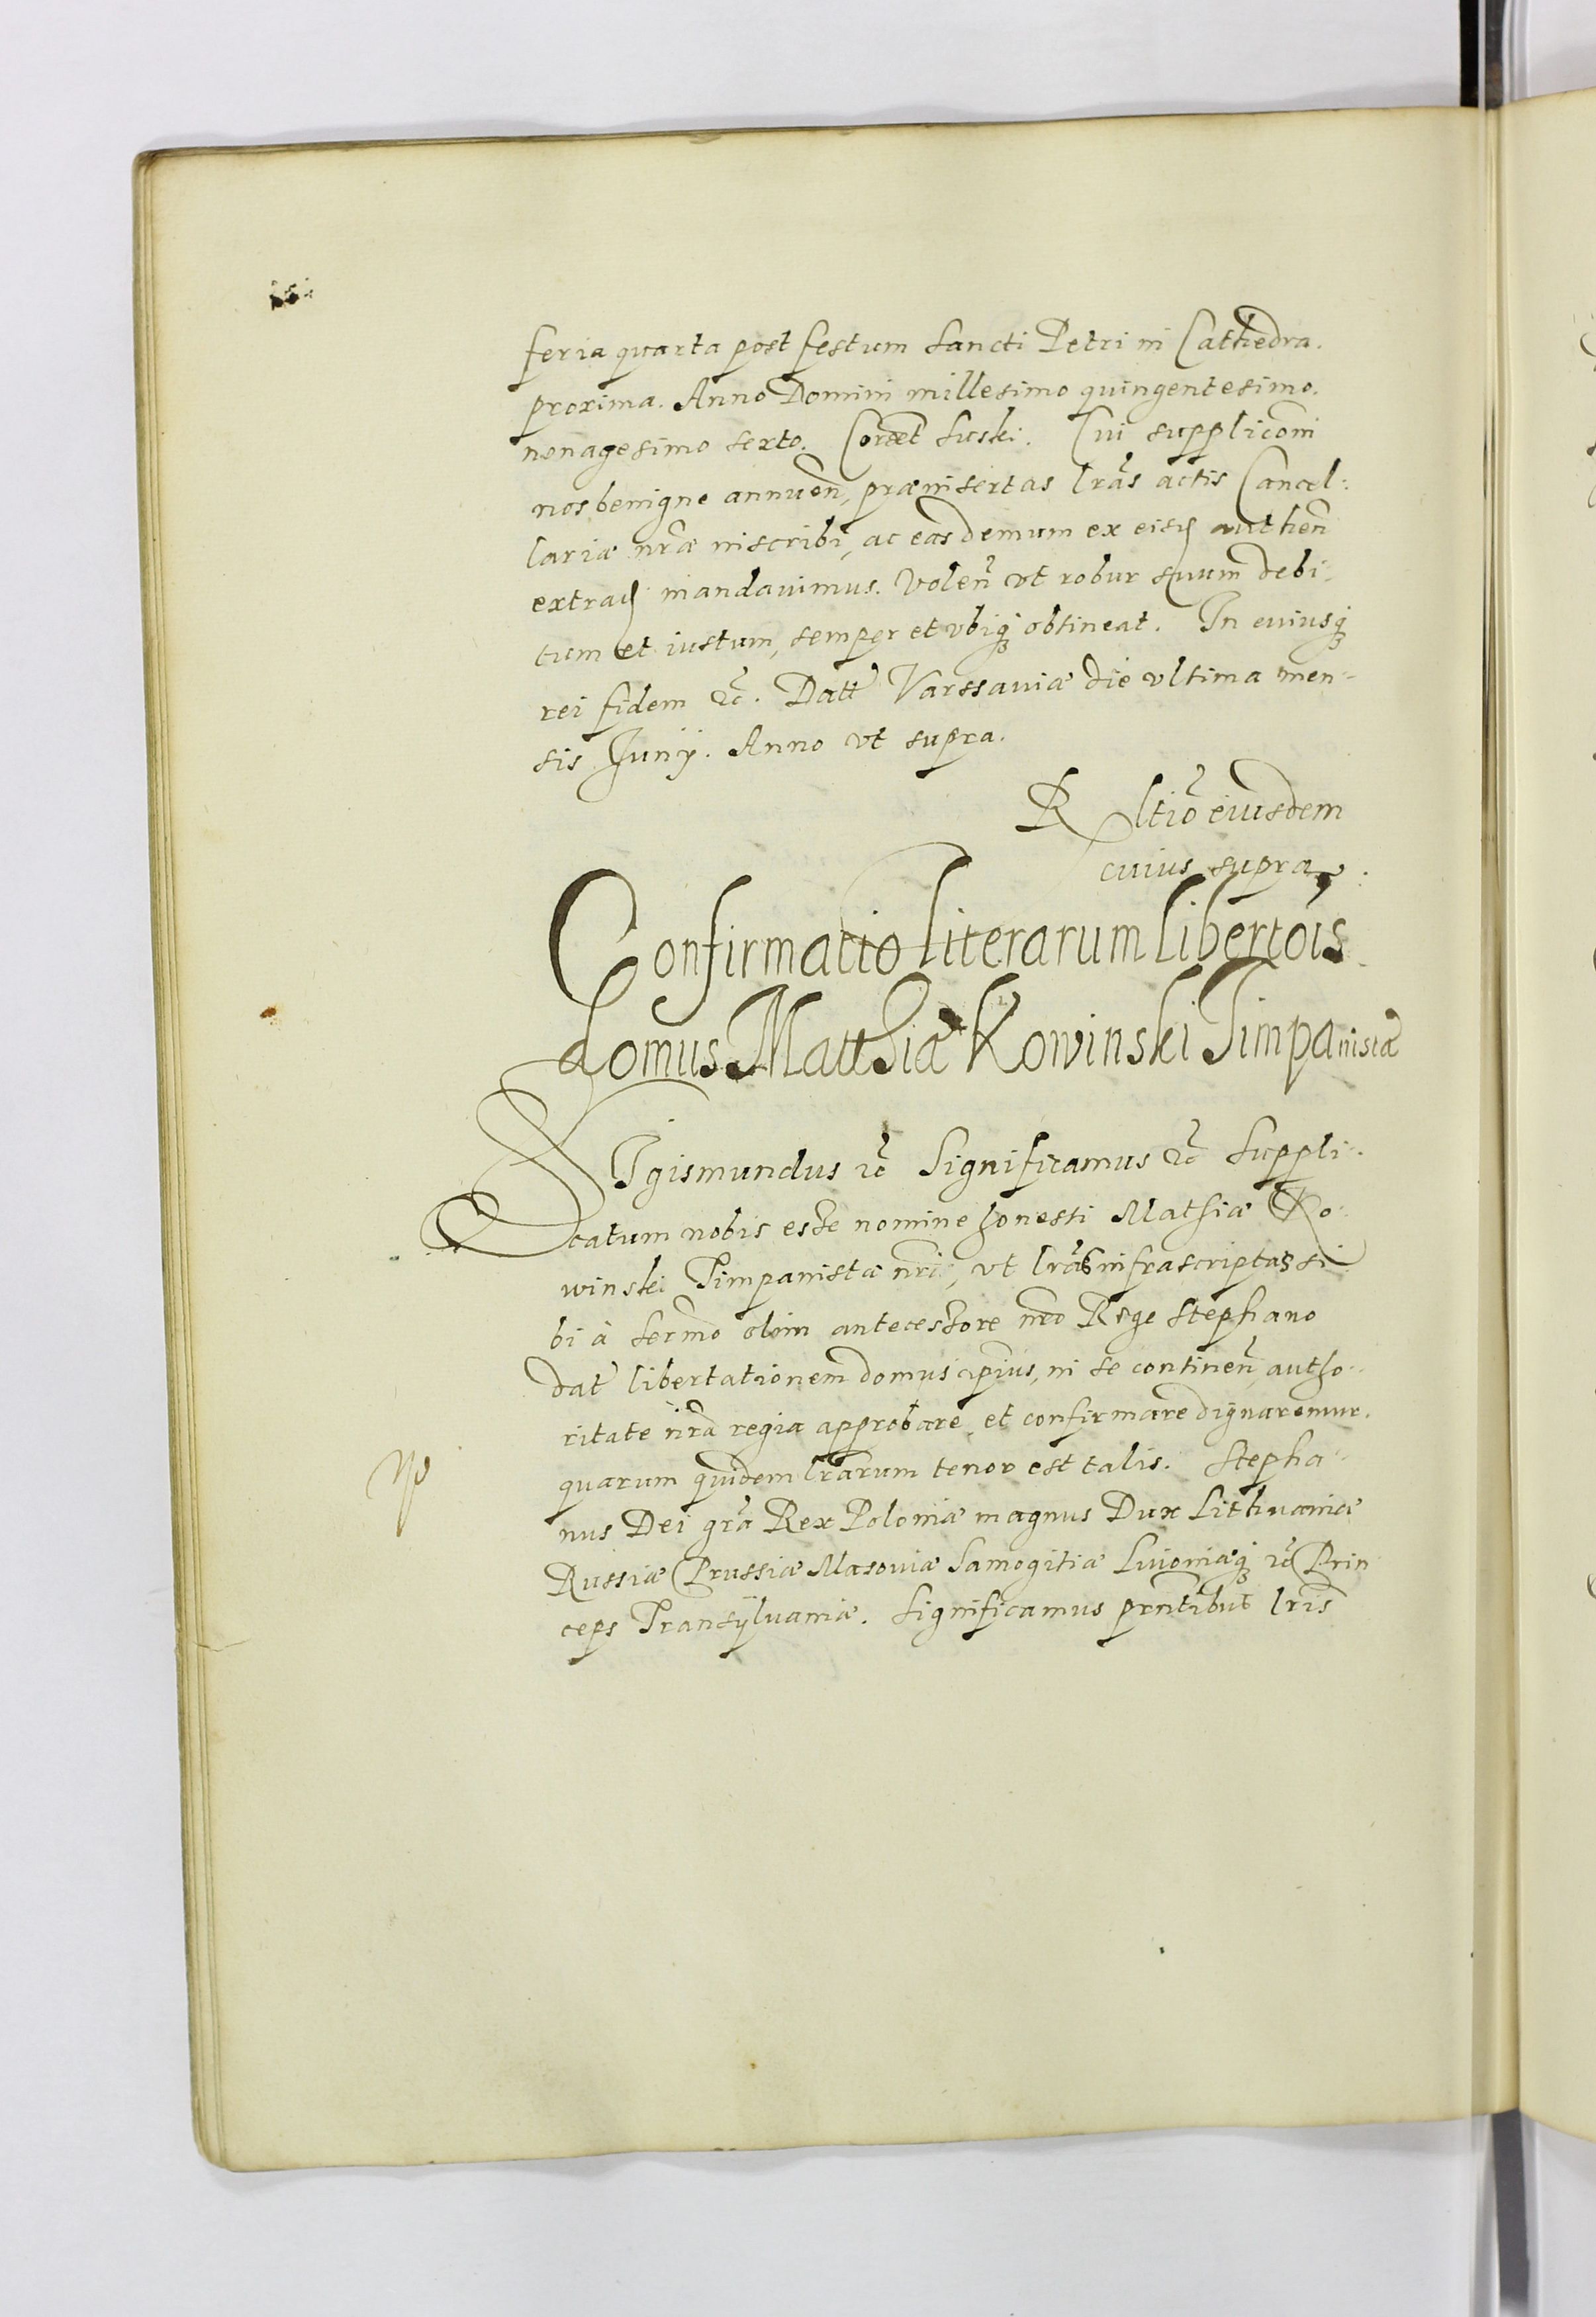 feria quarta post festum Sancti Petri in Cathedra.
proxima. Anno Domini millesimo quingentesimo.
nonagesimo sexto. Susski. Cui supplicõni
nos benigne annuen̄, præinsertas lrãs actis Cancel:
lariæ nrãe inscribi, ac eas demum ex eisd authen̄
extradi mandauimus. Volen̄ vt robur suum debi-
tum et iustum, semper et vbiq; obtineat. In cuiusq;
rei fidem &c. Datt Varssauiæ die vltima men-
sis Junij. Anno vt supra.
R ltiõ eiusdem
cuius supra.
Confirmatio literarum libertõis
domus Matthiæ Kowinski Timpanistæ
SIgismundus &c Significamus &c Suppli-
catum nobis esse nomine honesti Mathiæ Ko-
winski Timpanistæ nri, vt lrãs infrascriptas si
bi à Sermõ olim antecessore nrõ Rege Stephano
dat libertationem domus ipius, in se continen̄, autho-
ritate nrã regia approbare et confirmare dignaremur.
quarum quidem lrarum tenor est talis. Stepha-
nus Dei grã Rex Poloniæ magnus Dux Lithuaniæ
Russiæ Prussiæ Masouiæ Samogitiæ Liuoniæq; &c Prin
ceps Transÿluaniæ. Significamus prntibus lris